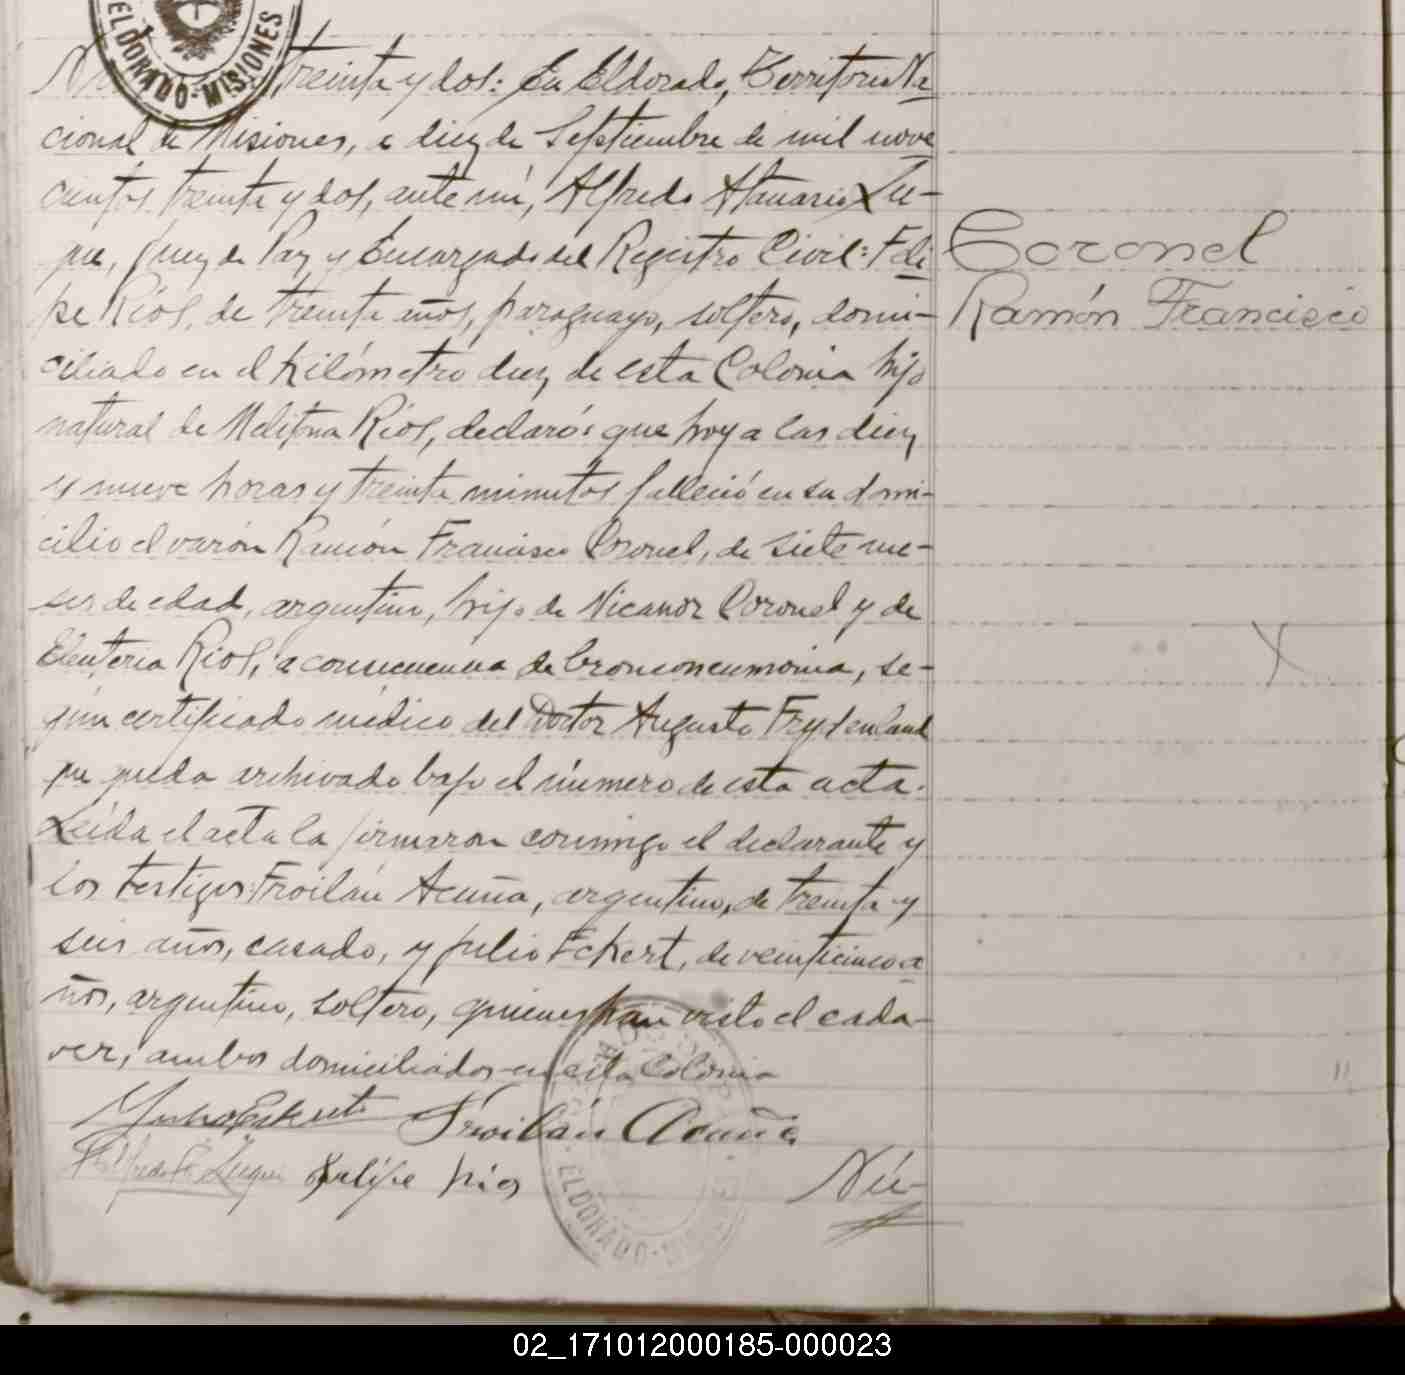 ELDORADO-MISIONES
treinta y dos: En Eldorado, Territorio Na
cional de Misiones, a diez de Septiembre de mil nove
cientos treinta y dos, ante mí, Alfredo Atanario Lu-
que, Juez de Paz y Encargado del Registro Civil: Feli
pe Ríos, de treinta años, paraguayo, soltero, domi-
ciliado en el kilómetro diez de esta Colonia hijo
natural de Melitona Ríos, declaró: que hoy a las diez
y nueve horas y treinta minutos falleció en su domi-
cilio el varón Ramón Francisco Coronel, de siete me-
ses de edad, argentino, hijo de Nicanor Coronel y de
Eleuteria Ríos, a consecuencia de bronconeumonia, se-
gún certificado médico del Doctor Augusto Frydenlund
que queda archivado bajo el número de esta acta.
Leída el acta la firmaron conmigo el declarante y
los testigos: Froilán Acuña, argentino, de treinta y
seis años, casado, y Julio Eckert, de veinticinco a
ños, argentino, soltero, quienes han visto el cada-
ver, ambos domiciliados en esta Colonia
Froilán Acuña
Felipe Rios
ELDORADO-MISIONES
Coronel
Ramón Francisco
02_171012000185-000023